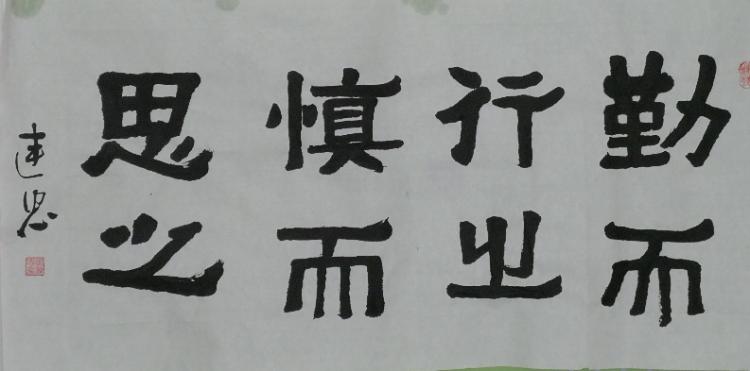 勤而
行之
慎而
思之
建忠